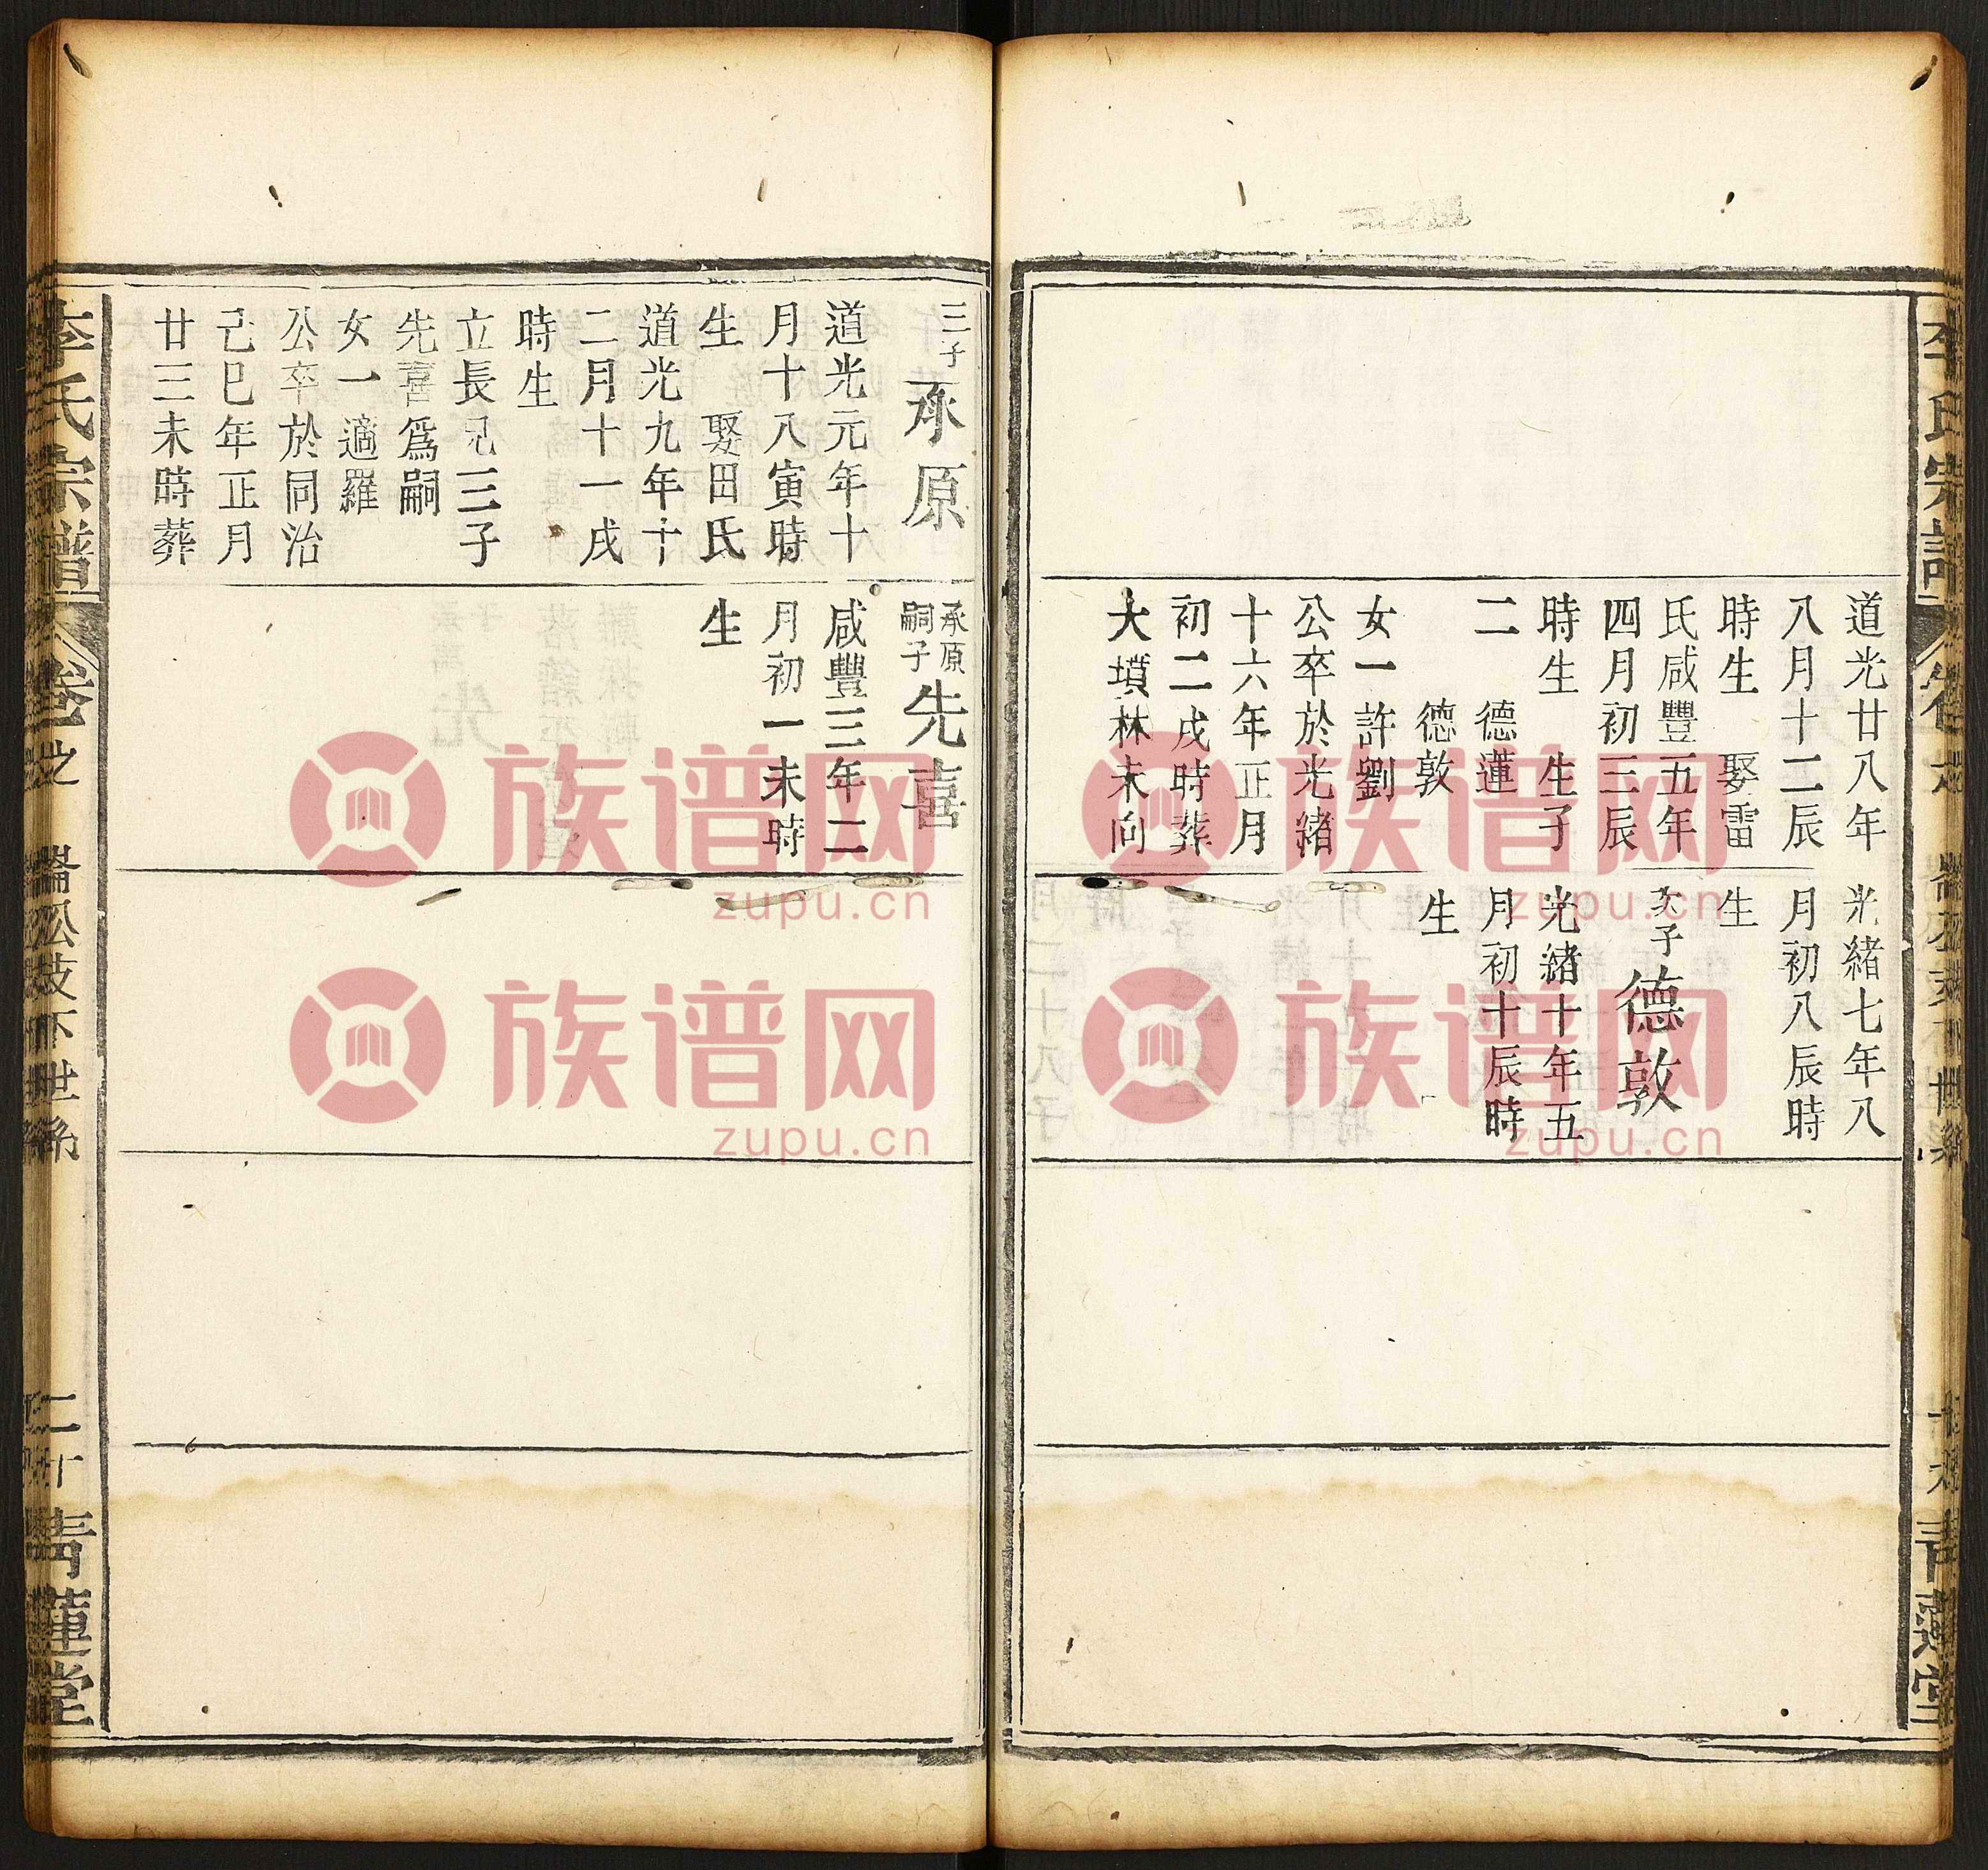 道光廿八年
八月十二辰
時生　娶雷
氏咸豐五年
四月初三辰
時生　生子
二　德蓮
德敦
女一許劉
公卒於光緒
十六年正月
初二戌時葬
大墳林未向
光緒七年八
月初八辰時
生
次子 德敦
光緒十年五
月初十辰時
生
三子 承原
道光元年十
月十八寅時
生　娶田氏
道光九年十
二月十一戌
時生
立長兄三子
先喜為嗣
女一適羅
公卒於同治
己巳年正月
廿三未時葬
承原嗣子 先喜
咸豐三年二
月初一未時
生
李氏宗譜
卷之
公技下世系
二十
青蓮堂
李氏宗譜
青蓮堂
族谱网
zupu.cn
族谱网
zupu.cn
族谱网
zupu.cn
族谱网
zupu.cn